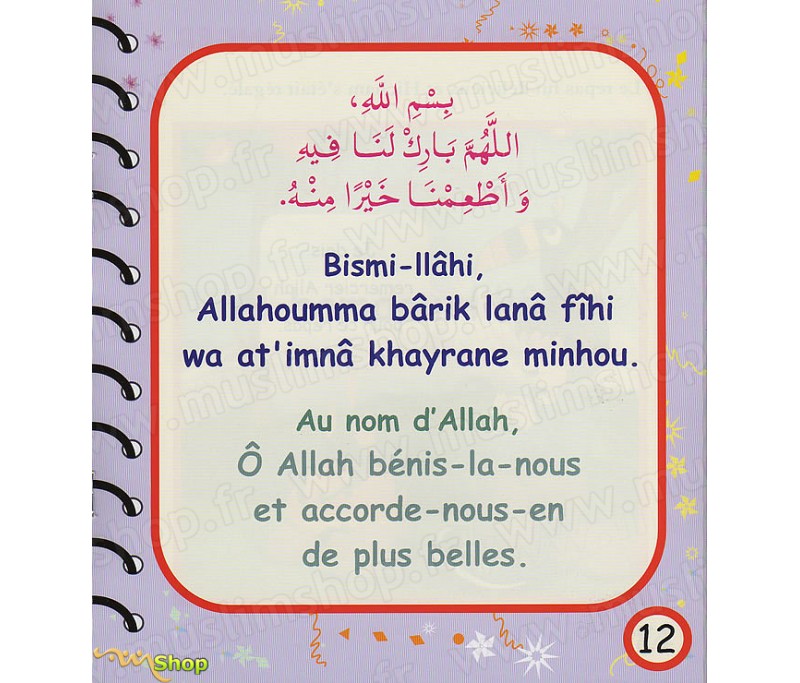 بِسْمِ اللَّهِ،
اللَّهُمَّ بَارِكْ لَنَا فِيهِ
وَ أَطْعِمْنَا خَيْرًا مِنْهُ.
Bismi-llâhi,
Allahoumma bârik lanâ fîhi
wa at'imnâ khayrane minhou.
Au nom d'Allah,
Ô Allah bénis-la-nous
et accorde-nous-en
de plus belles.
12
Shop
www.muslimshop.fr